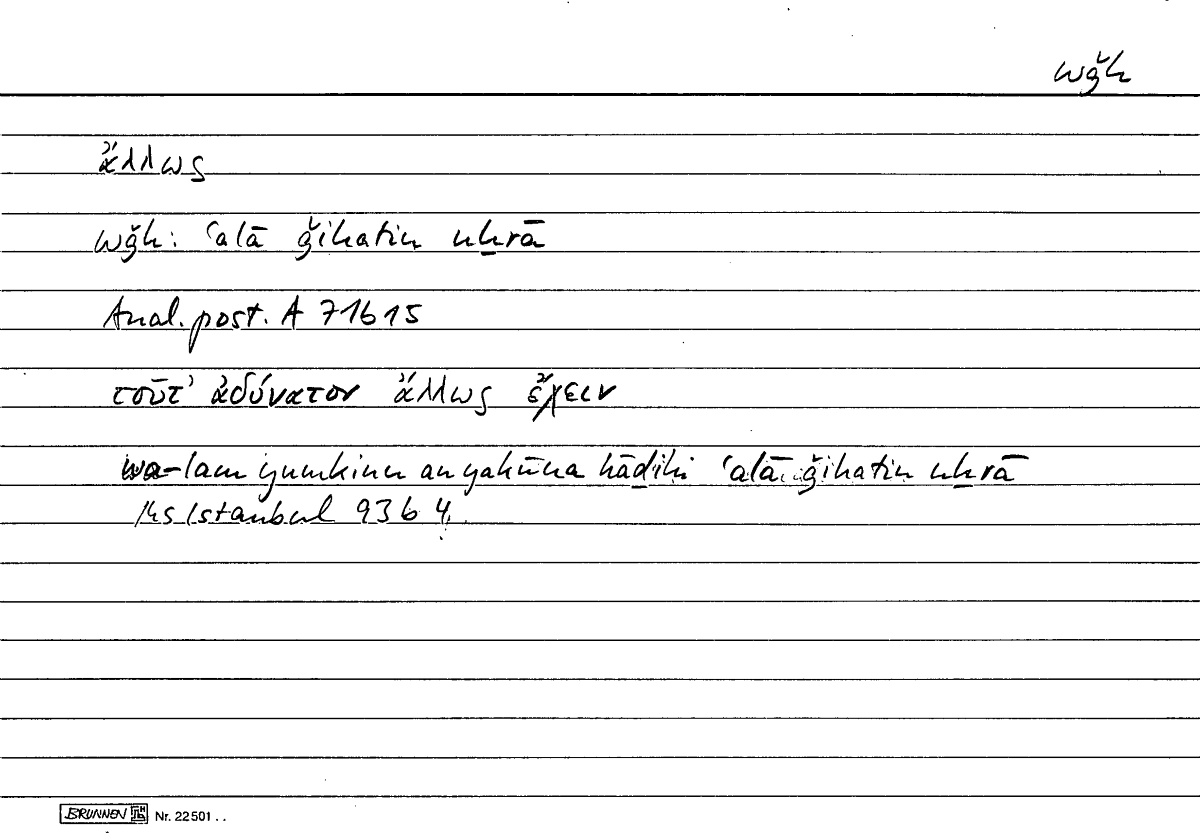 wǧh
ἄλλως
wǧh: ʿalā ǧihatin uḫrā
Anal. post. A 71b15
τοῦτ’ ἀδύνατον ἄλλως ἔχειν
wa-lam yumkinu an yakūna hāḏihi ʿalā ǧihatin uḫrā
Ms Istanbul 93b 4.
BRUNNEN Nr. 22 501 . .